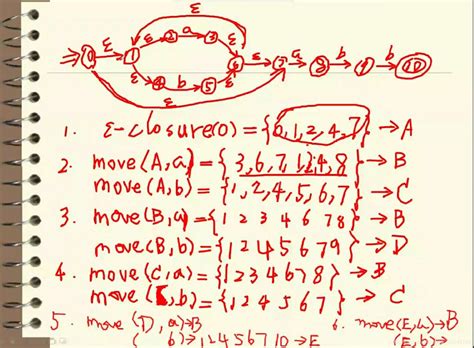 ⇒ 0 ε 1 ε 2 a 3 ε 6 ε 7 a 8 b 9 b 10
ε 4 b 5 ε
ε
ε
1. ε-closure(0) = {0,1,2,4,7} → A
2. move(A,a) = {3,6,7,1,2,4,8} → B
move(A,b) = {1,2,4,5,6,7} → C
3. move(B,a) = {1 2 3 4 6 7 8} → B
move(B,b) = {1 2 4 5 6 7 9} → D
4. move(C,a) = {1 2 3 4 6 7 8} → B
move(C,b) = {1 2 4 5 6 7} → C
5. move(D,a) → B 6. move(E,a) → B
( b) → 1 2 4 5 6 7 10 → E (E,b) →